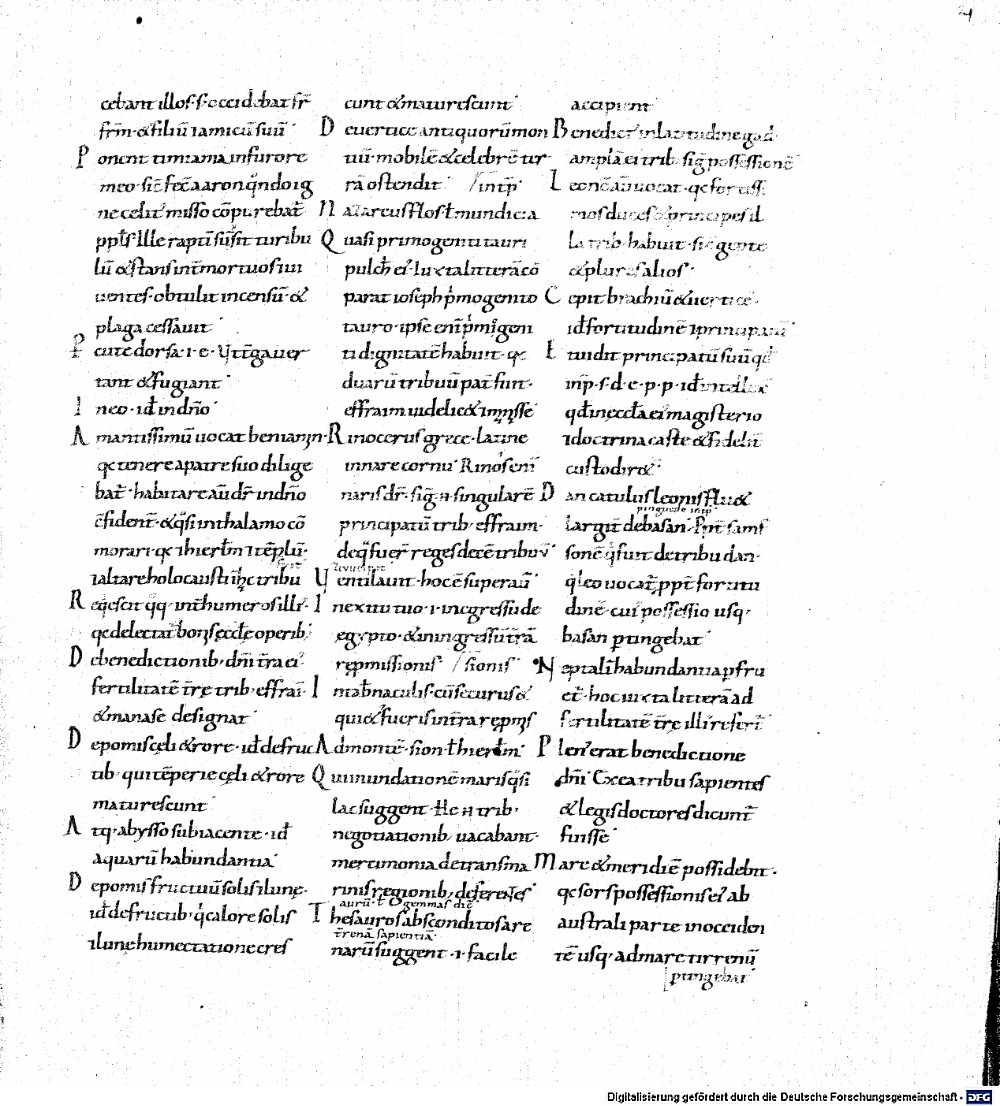 cebant illos· s· occidebat fr̄
frm̄· & filiū ł amicū suū·
Ponent timiama in furore
meo· sic̄ fec̄ aaron qn̄do ig
ne celit᷒ misso cōburebat᷒
pp̄ls· Ille raptū sūsit turibu
lū & stans int̄ mortuos & ui
uentes· obtulit incensū· &
plaga cessauit·
Pcute dorsa· i· e·
tant & fugiant·
In eo· id̄ in dn̄o·
Amantissimū uocat beniamin·
qc̄ tenere a patre suo dilige
bat᷒· habitare aū dr̄ in dn̄o
c̄fident᷒· & qs̄i in thalamo cō
morari· qc̄ in hierl̄m ł tēplū·
ł altare holocausti in hc̄ tribu fuit
Reqescit qq̄· int̄ humeros illi᷒·
qc̄ delectat᷒ bonis eccl̄e operib᷒·
De benedictionib· dn̄i t̄ra ei᷒·
fertilitatē t̄rę trib· effrai·
& manase designat·
De pomis cęli & rore· id̄ de fruc
tib· qui tēperie cęli & rore
maturescunt·
Atq· abysso subiacente· id̄
aquarū habundantia·
De pomis fructuū solis ł lunę·
id̄ de fructib· q̄ calore solis
ł lune humectatione cres
cunt & maturescunt·
De uertice antiquorū mon
tiū· mobilē & celebrē ter
rā ostendit· / intp̄r
Nazareus flos ł mundicia
Quasi primogeniti tauri
pulch̄ ei᷒· Iuxta litterā cō
parat ioseph p̄mogenito
tauro· ipse eni p̄mi̊geni
ti dignitatē habuit· qc̄
duarū tribuū pat̄ fuit·
effraim uidelic& & manasse·
Rinocerus grece· latine
in nare cornu· Rinos eni
naris dr̄· siḡ· n̄ singularē
principatū trib᷒· effraim·
de q̄ fuer̄ reges decē tribuū·
Uentilauit· hoc ē superauit·
In exitu tuo· i· ingressu de
egypto· & in ingressū t̄rā
rep̄missionis· / sionis·
In tab̄naculis· cū securus &
qui&᷒ fueris in t̄ra rep̄mis
Ad montē· sion ł hierl̄m·
Qui inundationē maris qs̄i
lac suggent· Hec n̄ trib·
negotiationib· uacabant·
mercimonia de transma
rinis regionib· deferentes·
aurū· ł gemmas dic̄
Thesauros absconditos are
t̄renā sapientiā·
narū suggent· i· facile
accipient·
Benedict᷒ in latitudine gad·
amplā ei trib· siḡ possessionē
Leonē aū uocat· qc̄ fortiss
mos duces & principes il
la trib· habuit· sic̄ gente
& plures alios·
Cepit brachiū & uerticē·
id̄ fortitudinē ł principatū·
Et uidit principatū suū qd̄
inp̄· s· d· e· p· p· id̄ intellex
qd̄ in eccl̄a ei magisterio
ł doctrina caste & fidelit᷒
custodire&·
Dan catulus leonis flu&
pinguedo intp̄·
largit᷒ de basan· Ppt̄ sams
sonē q̄ fuit de tribu dan·
q̄ leo uocat᷒ ppt̄ fortitu
dinē· cui᷒ possessio usq·
basan ptingebat·
Neptali habundantia pfru
et᷒· hoc iuxta litterā ad
fertilitatē t̄rę illi᷒ refert᷒
Plen᷒ erat benedictione
dn̄i· Ex ea tribu sapientes
& legis doctores dicunt᷒
fuisse·
Mare & meridiē possidebit·
qc̄ sors possessionis ei᷒ ab
australi parte in occiden
tē usq· ad mare tirrenū
ptingebat·